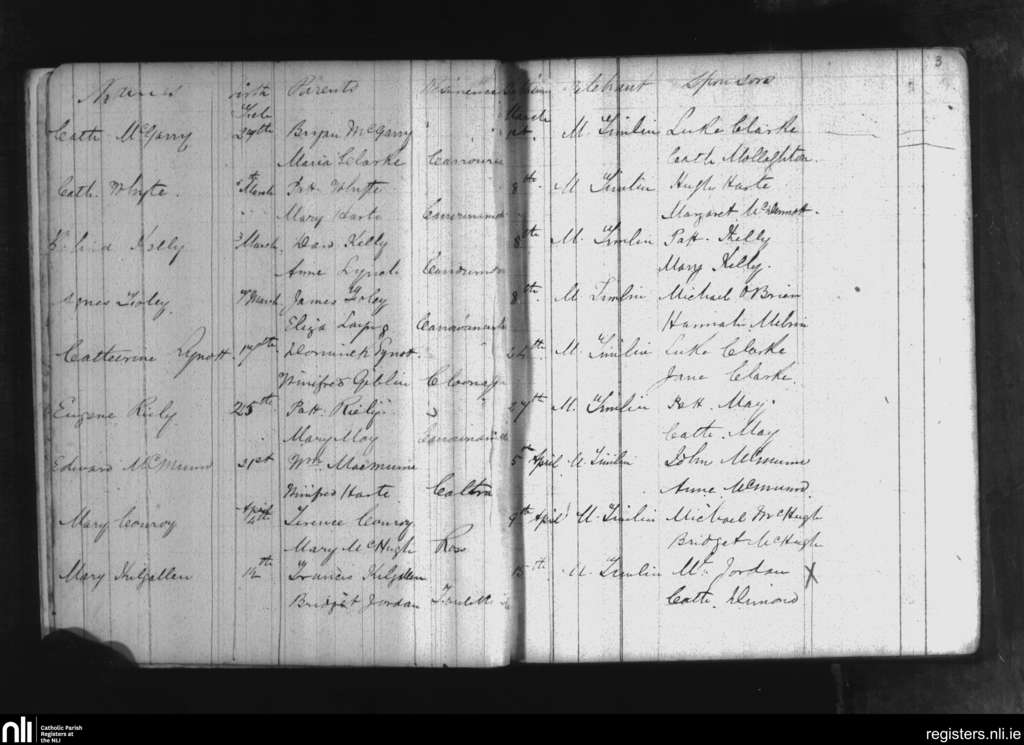 Names Birth Parents Residence Baptism Celebrant Sponsors 3
Feb March
Cath McGarry 24th Bryan McGarry 1st M. Timlin Luke Clarke
Maria Clarke Cath Mollaghton
Cath. Whyte March Patt Whyte 8th M Timlin Hugh Harte
Mary Harte Margaret McDermott
Kelly 3 March Kelly 8th M. Timlin Patt. Kelly
Anne Mary Kelly.
Agnes Foley 7 March James Foley 8th M Timlin Michael O'Brien
Eliza Hannah Melvin
Catherine Rynott 17th Dominick Rynott 24th M. Timlin Luke Clarke
Winifred Giblin Jane Clarke
Eugene Riely 25th Patt. Riely 27th M. Timlin Patt. May
Mary May Cath. May
Edward McMunn 21st Wm 5th April M Timlin John McMunn
Winifred Harte Caltra Anne McMunn
Mary Conroy April 4th Terence Conroy 9th April M. Timlin Michael McHugh
Mary McHugh Ross Bridget McHugh
Mary Kilgallen 12th Francis Kilgallen 15th M. Timlin Mt. Jordan X
Bridget Jordan Cath.
nli Catholic Parish
Registers at
the NLI
registers.nli.ie